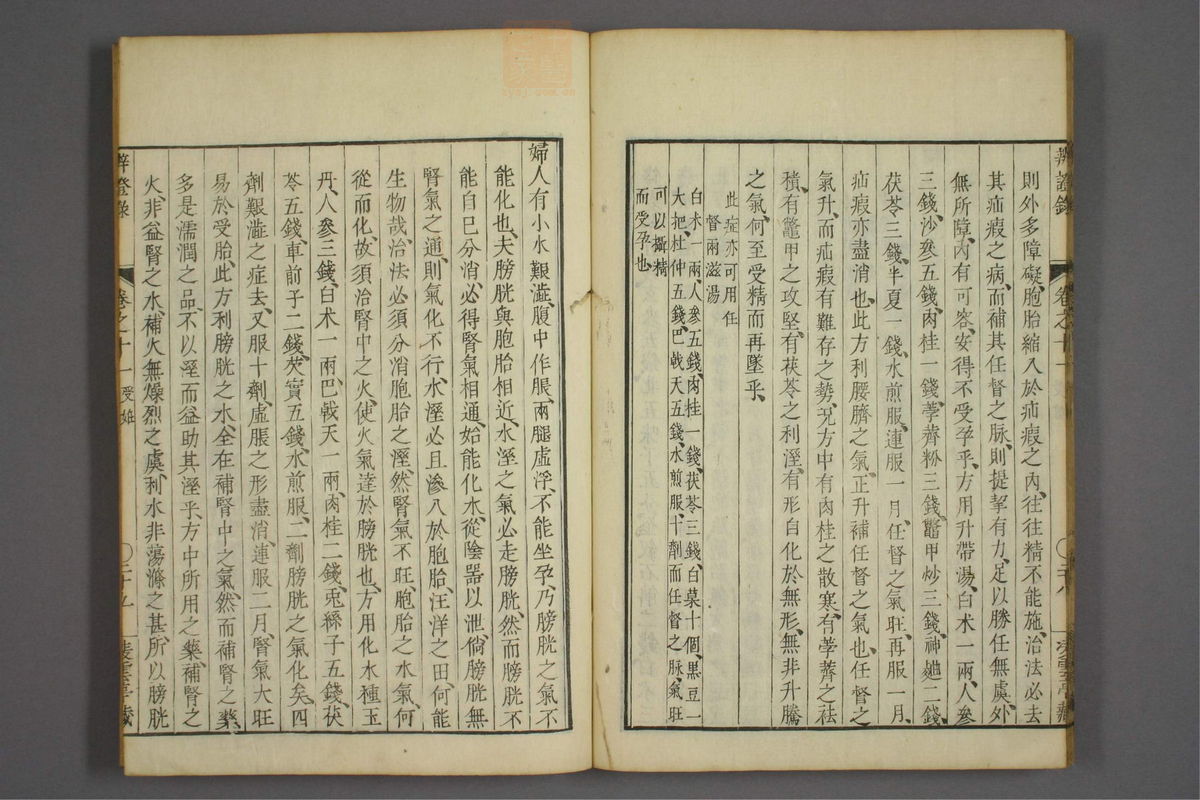 辨證錄
卷之十一
則外多障礙胞胎縮入於疝瘕之內往往精不能施治法必去
其疝瘕之病而補其任督之脉則提挈有力足以勝任無虞外
無所障內有可容安得不受孕乎方用升帶湯白术一兩人參
三錢沙參五錢肉桂一錢荸薺粉三錢鼈甲炒三錢神麯二錢
茯苓三錢半夏一錢水煎服連服一月任督之氣旺再服一月
疝瘕亦盡消也此方利腰臍之氣正升補任督之氣也任督之
氣升而疝瘕有難存之勢况方中有肉桂之散寒有荸薺之祛
積有鼈甲之攻堅有茯苓之利溼有形自化於無形無非升騰
之氣何至受精而再墜乎
此症亦可用任
督兩滋湯
白术一兩人參五錢肉桂一錢茯苓三錢白菓十個黑豆一
大把杜仲五錢巴戟天五錢水煎服十劑而任督之脉氣旺
可以攝精
而受孕也
婦人有小水艱澁腹中作脹兩腿虛浮不能坐孕乃膀胱之氣不
能化也夫膀胱與胞胎相近水溼之氣必走膀胱然而膀胱不
能自巳分消必得腎氣相通始能化水從陰器以泄倘膀胱無
腎氣之通則氣化不行水溼必且滲入於胞胎汪洋之田何能
生物哉治法必須分消胞胎之溼然腎氣不旺胞胎之水氣何
從而化故須治腎中之火使火氣達於膀胱也方用化水種玉
丹人參三錢白术一兩巴戟天一兩肉桂二錢兎絲子五錢茯
苓五錢車前子二錢芡實五錢水煎服二劑膀胱之氣化矣四
劑艱澁之症去又服十劑虛脹之形盡消連服二月腎氣大旺
易於受胎此方利膀胱之水全在補腎中之氣然而補腎之藥
多是濡潤之品不以溼而益助其溼乎方中所用之藥補腎之
火非益腎之水補火無燥烈之虞利水非蕩滌之甚所以膀胱
辨證錄
卷之十一
受姙
二十九